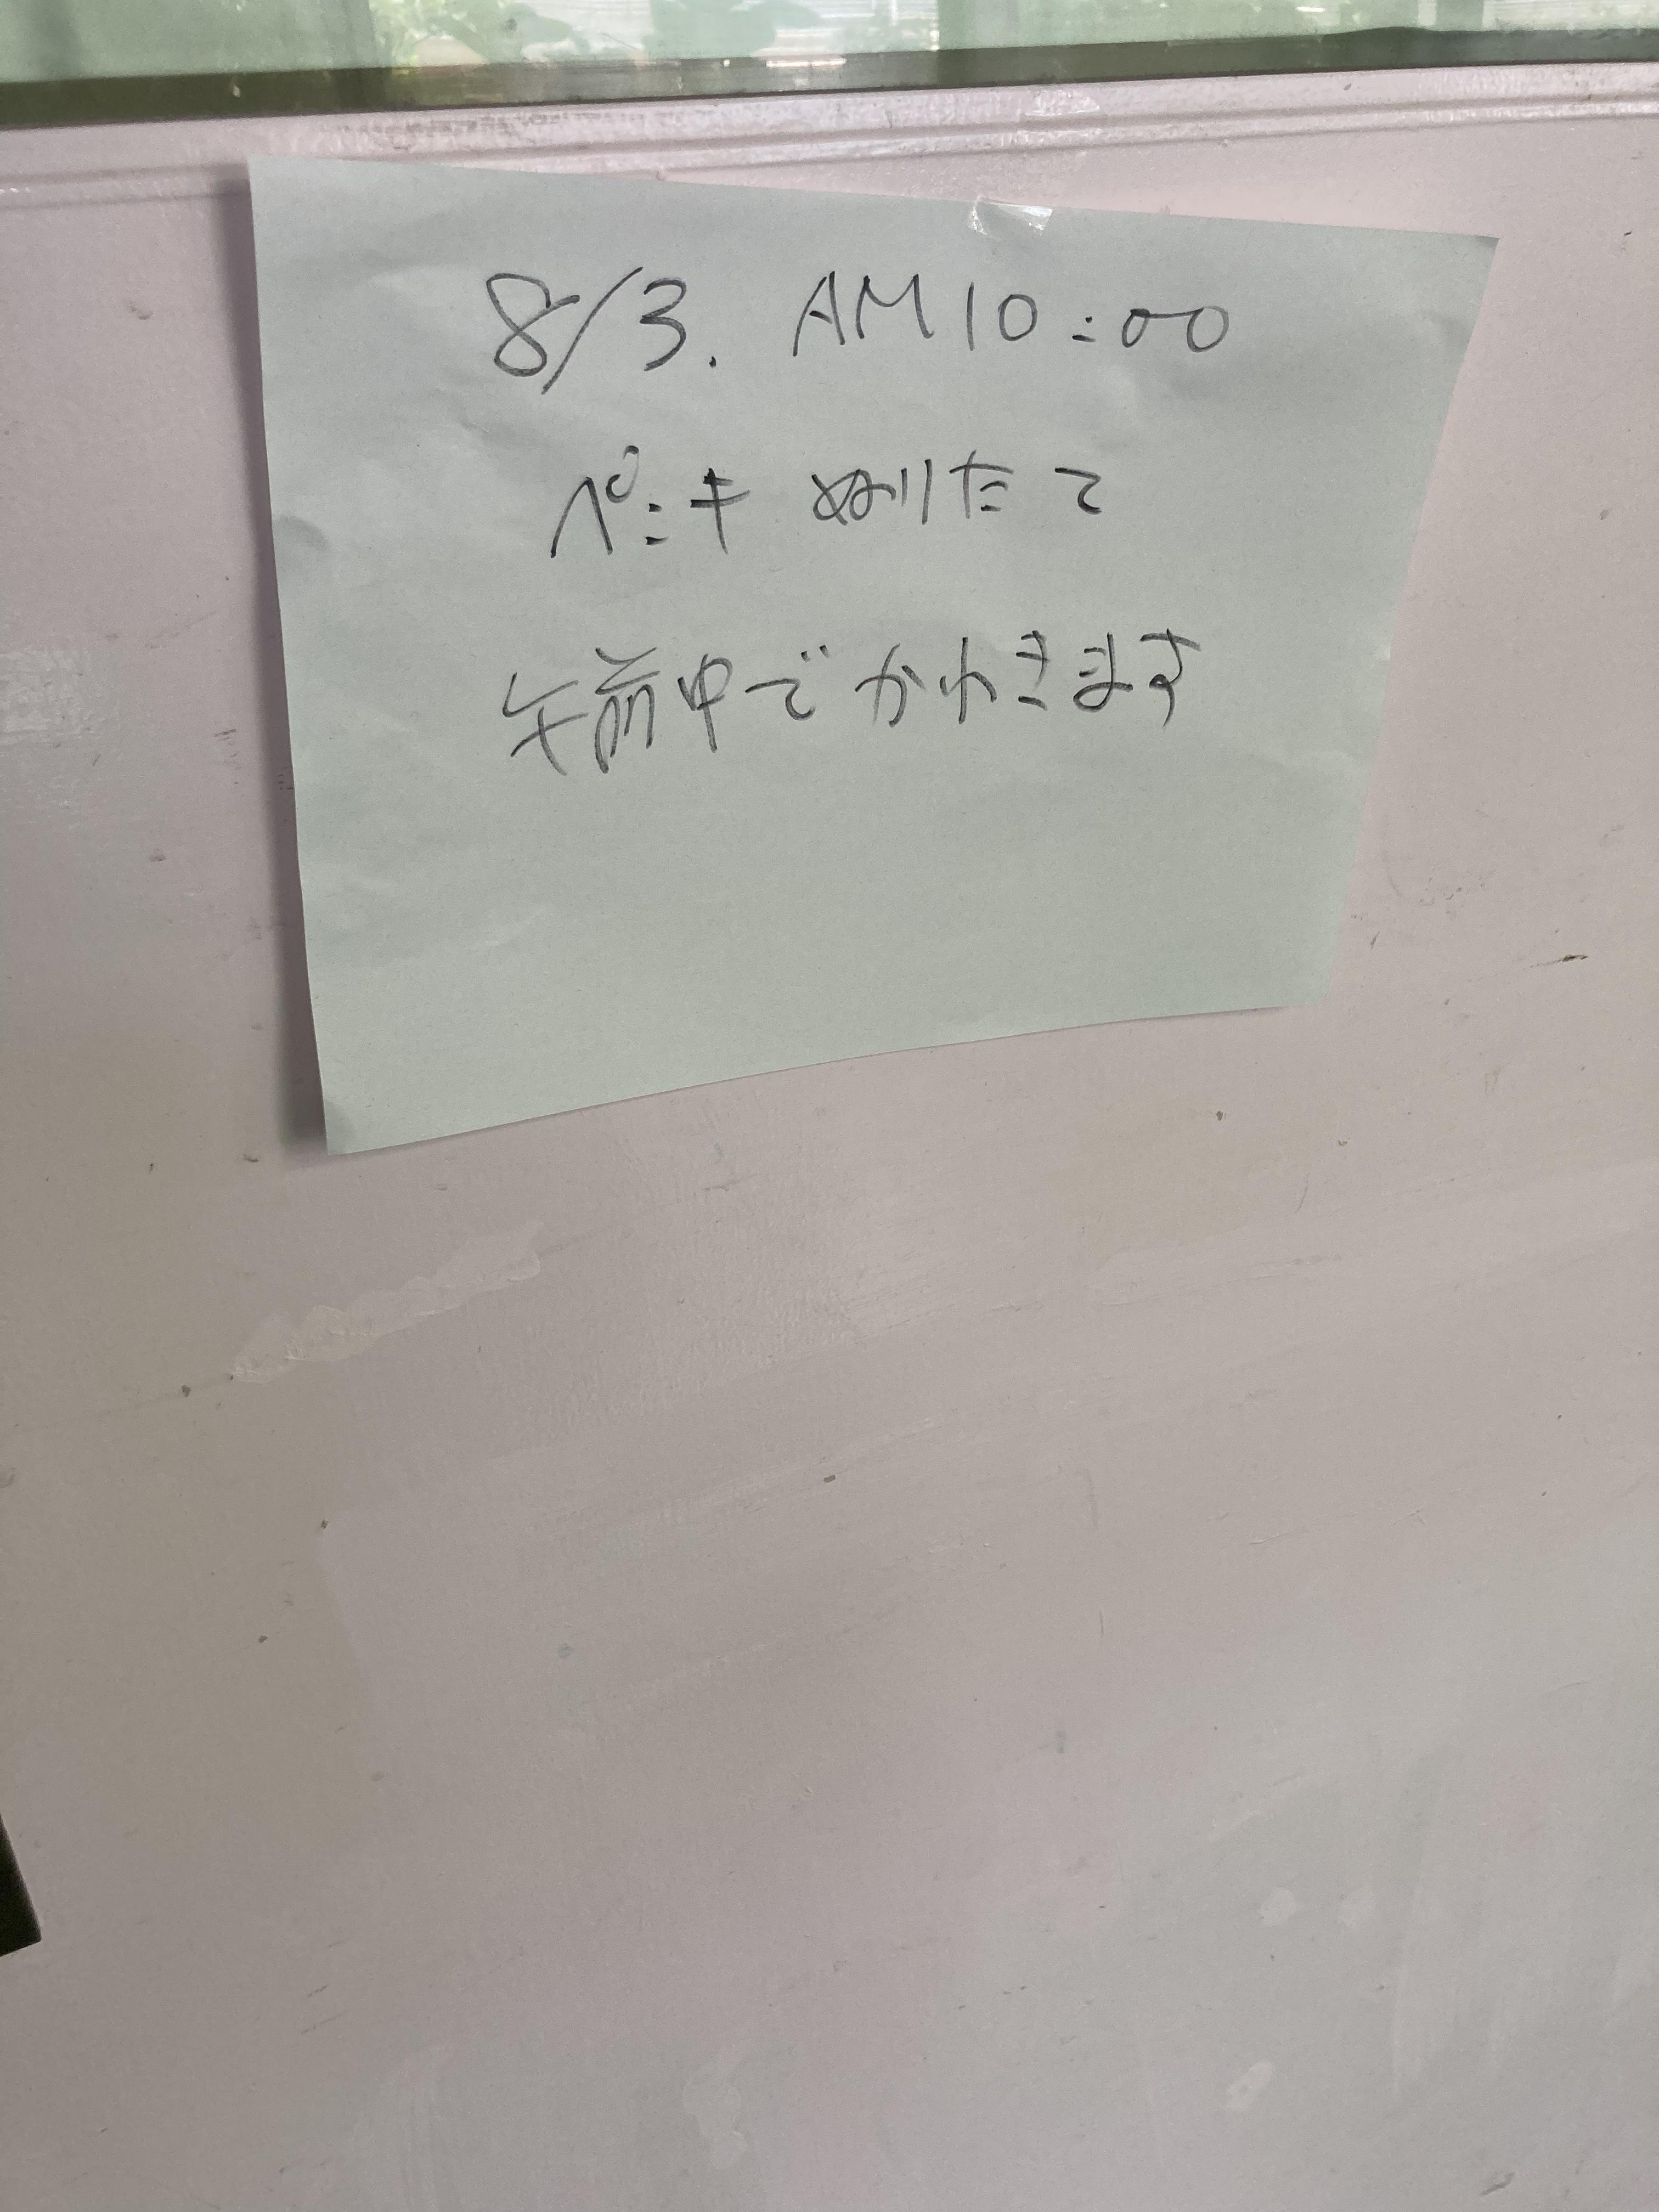 8/3. AM10:00
ペンキ ぬりたて
午前中でかわきます